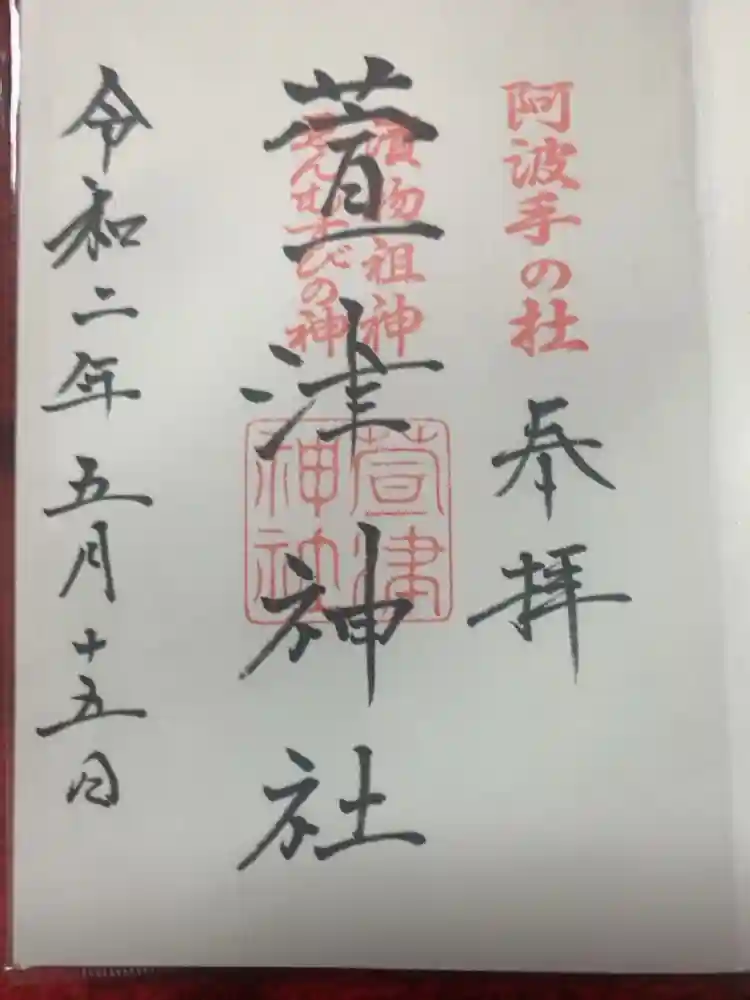 阿波手の杜
奉拝
漬物祖神
えんむすびの神
萱津神社
萱津神社
令和二年五月十五日